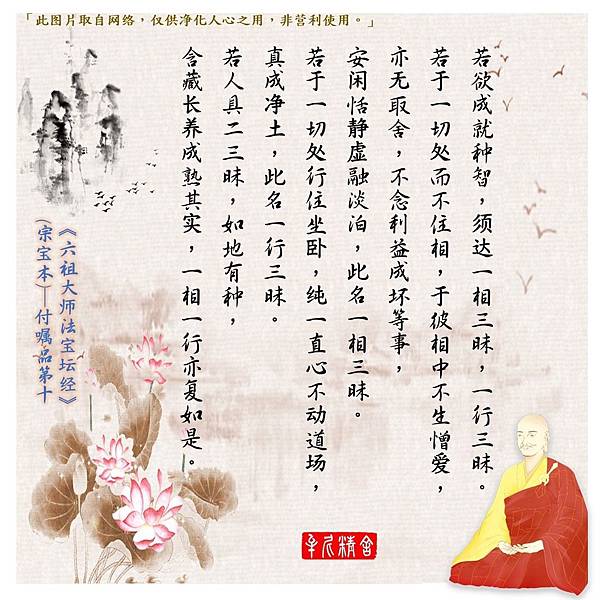 「此图片取自网络，仅供净化人心之用，非营利使用。」
若欲成就种智，须达一相三昧，一行三昧。
若于一切处而不住相，于彼相中不生憎爱，
亦无取舍，不念利益成坏等事，
安闲恬静虚融淡泊，此名一相三昧。
若于一切处行住坐卧，纯一直心不动道场，
真成净土，此名一行三昧。
若人具二三昧，如地有种，
含藏长养成熟其实，一相一行亦复如是。
《六祖大师法宝坛经》
(宗宝本)—付嘱品第十